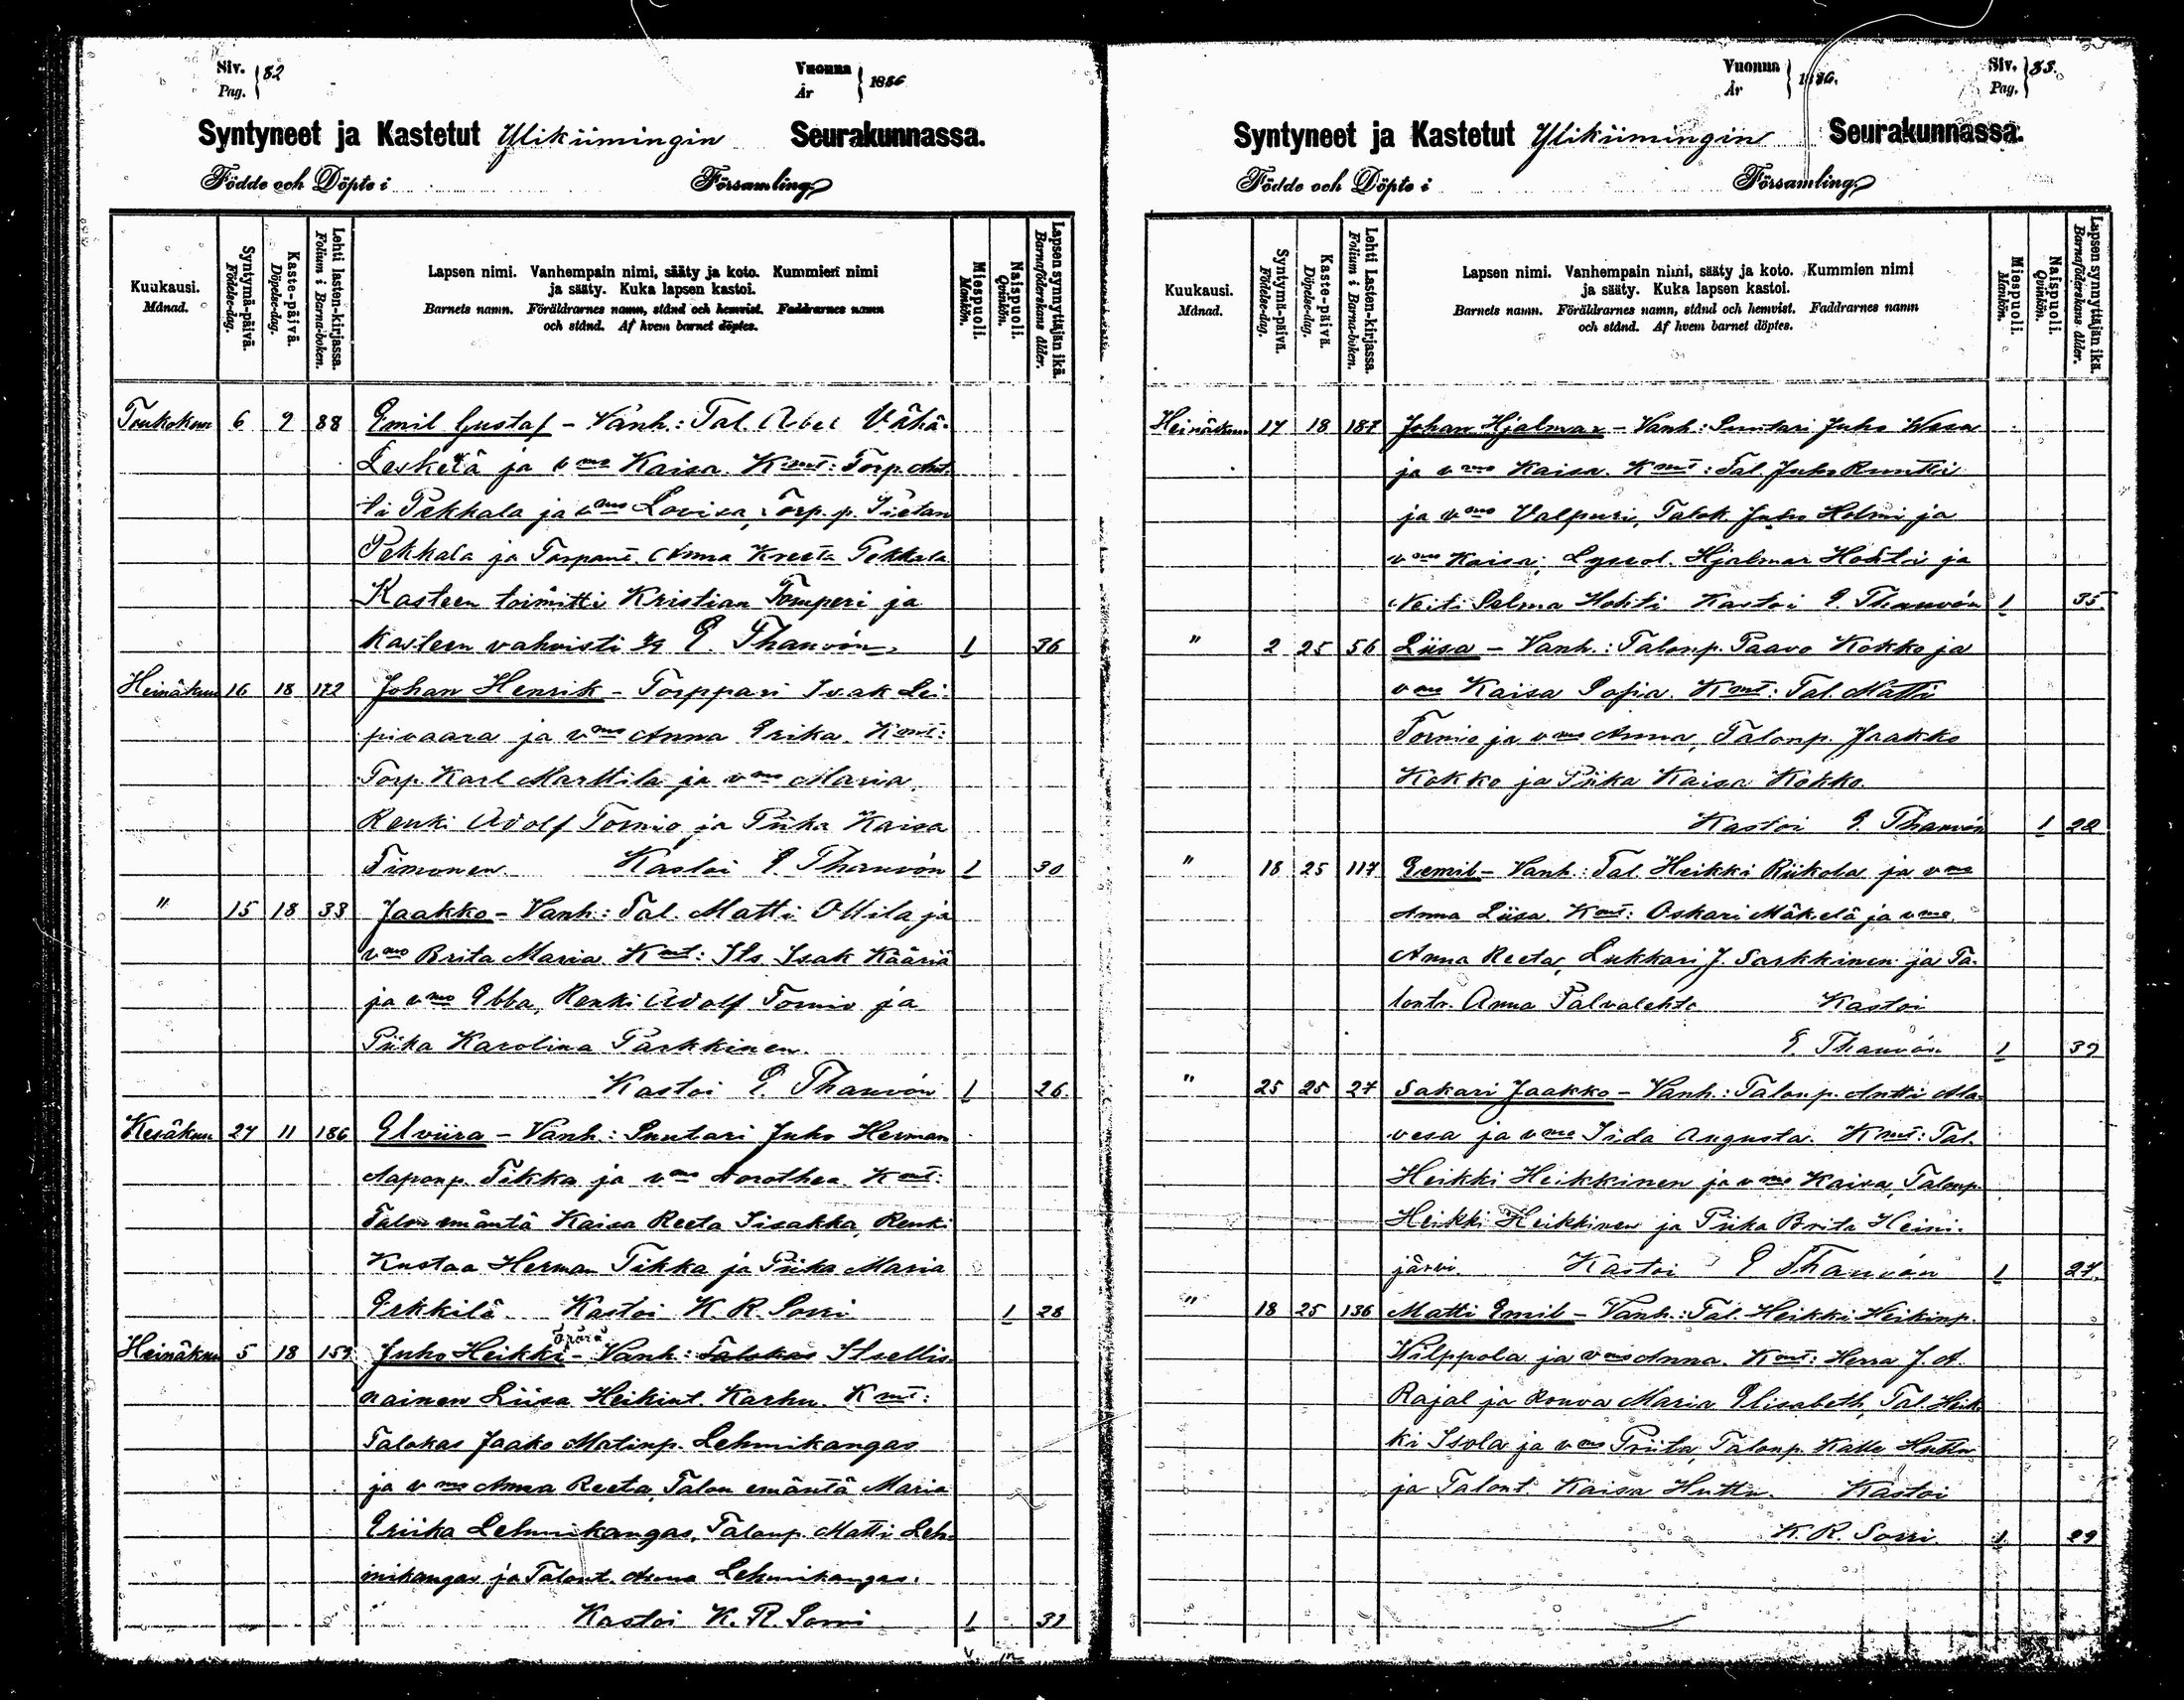 Siv. Pag. } 82
Vuonna År } 1886
Syntyneet ja Kastetut Ylikiimingin Seurakunnassa.
Födde och Döpte i Församling
Kuukausi. Månad.
Syntymä-päivä. Födelse-dag.
Kaste-päivä. Döpelse-dag.
Lehti lasten-kirjassa. Folium i Barna-boken.
Lapsen nimi. Vanhempain nimi, sääty ja koto. Kummien nimi
ja sääty. Kuka lapsen kastoi.
Barnets namn. Föräldrarnes namn, stånd och hemvist. Faddrarnes namn
och stånd. Af hvem barnet döptes.
Miespuoli. Mankön.
Naispuoli. Qvinkön.
Lapsen synnyttäjän ikä. Barnaföderskans ålder.
Toukokuu 6 9 88 Emil Gustaf - Vanh.: Tal. Abel Vähä-
Leskelä ja vmo Kaisa. Kmt: Torp. Ant-
ti Pekkala ja vmo Lovisa, Torp. p. Pietari
Pekkala ja Torpant. Anna Kreeta Pekkala
Kasteen toimitti Kristian Tomperi ja
kasteen vahvisti E. Thauvón. 1 36
Heinäkuu 16 18 172 Johan Henrik - Torppari Isak Lei-
pivaara ja vmo Anna Erika. Kmt:
Torp. Karl Marttila ja vmo Maria,
Renki Adolf Tornio ja Piika Kaisa
Timonen. Kastoi E. Thauvón 1 30
" 15 18 33 Jaakko - Vanh: Tal. Matti Ollila ja
vmo Brita Maria. Kmt: Its. Isak Kääriä
ja vmo Ebba, Renki Adolf Tornio ja
Piika Karolina Parkkinen.
Kastoi E. Thauvón 1 26.
Kesäkuu 27 11 186 Elviira - Vanh: Suutari Juho Herman
Aaponp. Tikka ja vmo Dorothea. Kmt:
Talon emäntä Kaisa Reeta Iisakka, Renki
Kustaa Herman Tikka ja Piika Maria
Erkkilä. Kastoi K. R. Sorri 1 28
Heinäkuu 5 18 159 Juho Heikki - Äpärä Vanh: Talokas Itsellis-
nainen Liisa Heikint. Karhu. Kmt:
Talokas Jaako Matinp. Lehmikangas
ja vmo Anna Reeta, Talon emäntä Maria
Eriika Lehmikangas, Talonp. Matti Leh-
mikangas ja Talont. Anna Lehmikangas.
Kastoi K. R. Sorri 1 32
Vuonna År } 1886.
Siv. Pag. } 83.
Syntyneet ja Kastetut Ylikiimingin Seurakunnassa.
Födde och Döpte i Församling.
Kuukausi. Månad.
Syntymä-päivä. Födelse-dag.
Kaste-päivä. Döpelse-dag.
Lehti Lasten-kirjassa. Folium i Barna-boken.
Lapsen nimi. Vanhempain nimi, sääty ja koto. Kummien nimi
ja sääty. Kuka lapsen kastoi.
Barnets namn. Föräldrarnes namn, stånd och hemvist. Faddrarnes namn
och stånd. Af hvem barnet döptes.
Miespuoli. Mankön.
Naispuoli. Qvinkön.
Lapsen synnyttäjän ikä. Barnaföderskans ålder.
Heinäkuu 17 18 187 Johan Hjalmar - Vanh: Suutari Juho Wesa
ja vmo Kaisa. Kmt: Tal. Juho Runtti
ja vmo Valpuri, Talok. Juho Holmi ja
vmo Kaisa; Lyseol. Hjalmar Hohti ja
Neiti Selma Hohti Kastoi E. Thauvón 1 35.
" 2 25 56 Liisa - Vanh.: Talonp. Paavo Kokko ja
vmo Kaisa Sofia. Kmt: Tal. Matti
Tornio ja vmo Anna, Talonp. Jaakko
Kokko ja Piika Kaisa Kokko.
Kastoi E. Thauvón 1 28
" 18 25 117 Eemil - Vanh: Tal. Heikki Riikola ja vmo
Anna Liisa. Kmt: Oskari Mäkelä ja vmo
Anna Reeta, Lukkari J. Sarkkinen ja Ta-
lontr. Anna Palvalehto Kastoi
E. Thauvón. 1 39
" 25 25 27 Sakari Jaakko - Vanh.: Talonp. Antti Ala-
vesa ja vmo Iida Augusta. Kmt: Tal.
Heikki Heikkinen ja vmo Kaisa, Talonp.
Heikki Heikkinen ja Piika Brita Heini-
järvi. Kastoi E Thauvón 1 27.
" 18 25 136 Matti Emil - Vanh.: Tal. Heikki Heikinp.
Wilppola ja vmo Anna. Kmt: Herra J. A.
Rajal ja Rouva Maria Elisabeth, Tal. Heik-
ki Isola ja vmo Priita, Talonp. Kalle Huttu
ja Talont. Kaisa Huttu. Kastoi
K. R. Sorri. 1 29